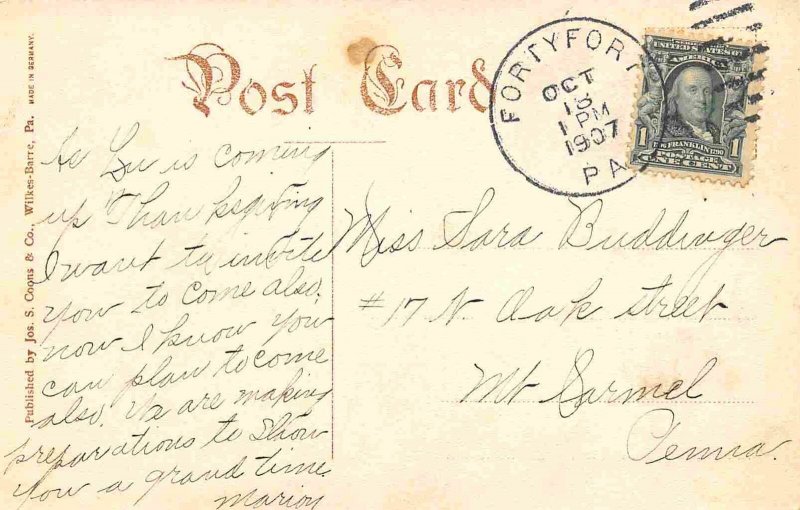 Post Card
FORTYFORT
OCT
13
1 PM
1907
PA
UNITED STATES OF
AMERICA
1 1
FRANKLIN 1790
POSTAGE
ONE CENT
MADE IN GERMANY.
Published by Jos. S. Coons & Co., Wilkes-Barre, Pa.
As Lu is coming
up Thanksgiving
I want to invite
you to come also.
now I know you
can plan to come
also. We are making
preparations to show
you a grand time
Marion
Miss Sara Buddinger
#17 N. Oak street
Mt Carmel
Penna.